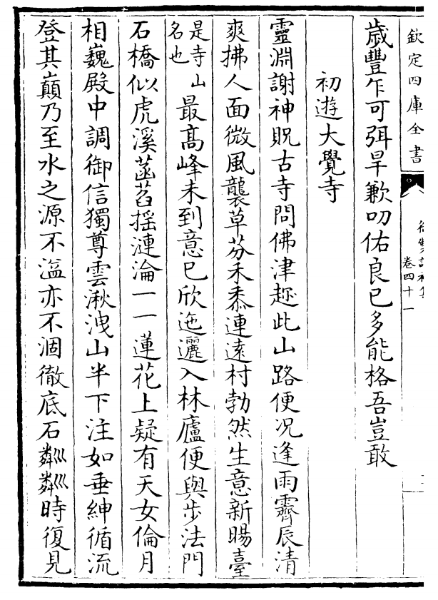 欽定四庫全書
卷四十一
歲豐乍可弭旱歉叨佑良已多能格吾豈敢
初遊大覺寺
靈淵謝神貺古寺問佛津趂此山路便況逢雨霽辰清
爽拂人面微風襲草芬禾黍連遠村勃然生意新暘臺
是寺山
名也
最高峰未到意已欣迤邐入林廬便與步法門
石橋似虎溪菡萏揺漣淪一一蓮花上疑有天女倫月
相巍殿中調御信獨尊雲湫洩山半下注如垂紳循流
登其巔乃至水之源不溢亦不涸徹底石粼粼時復見